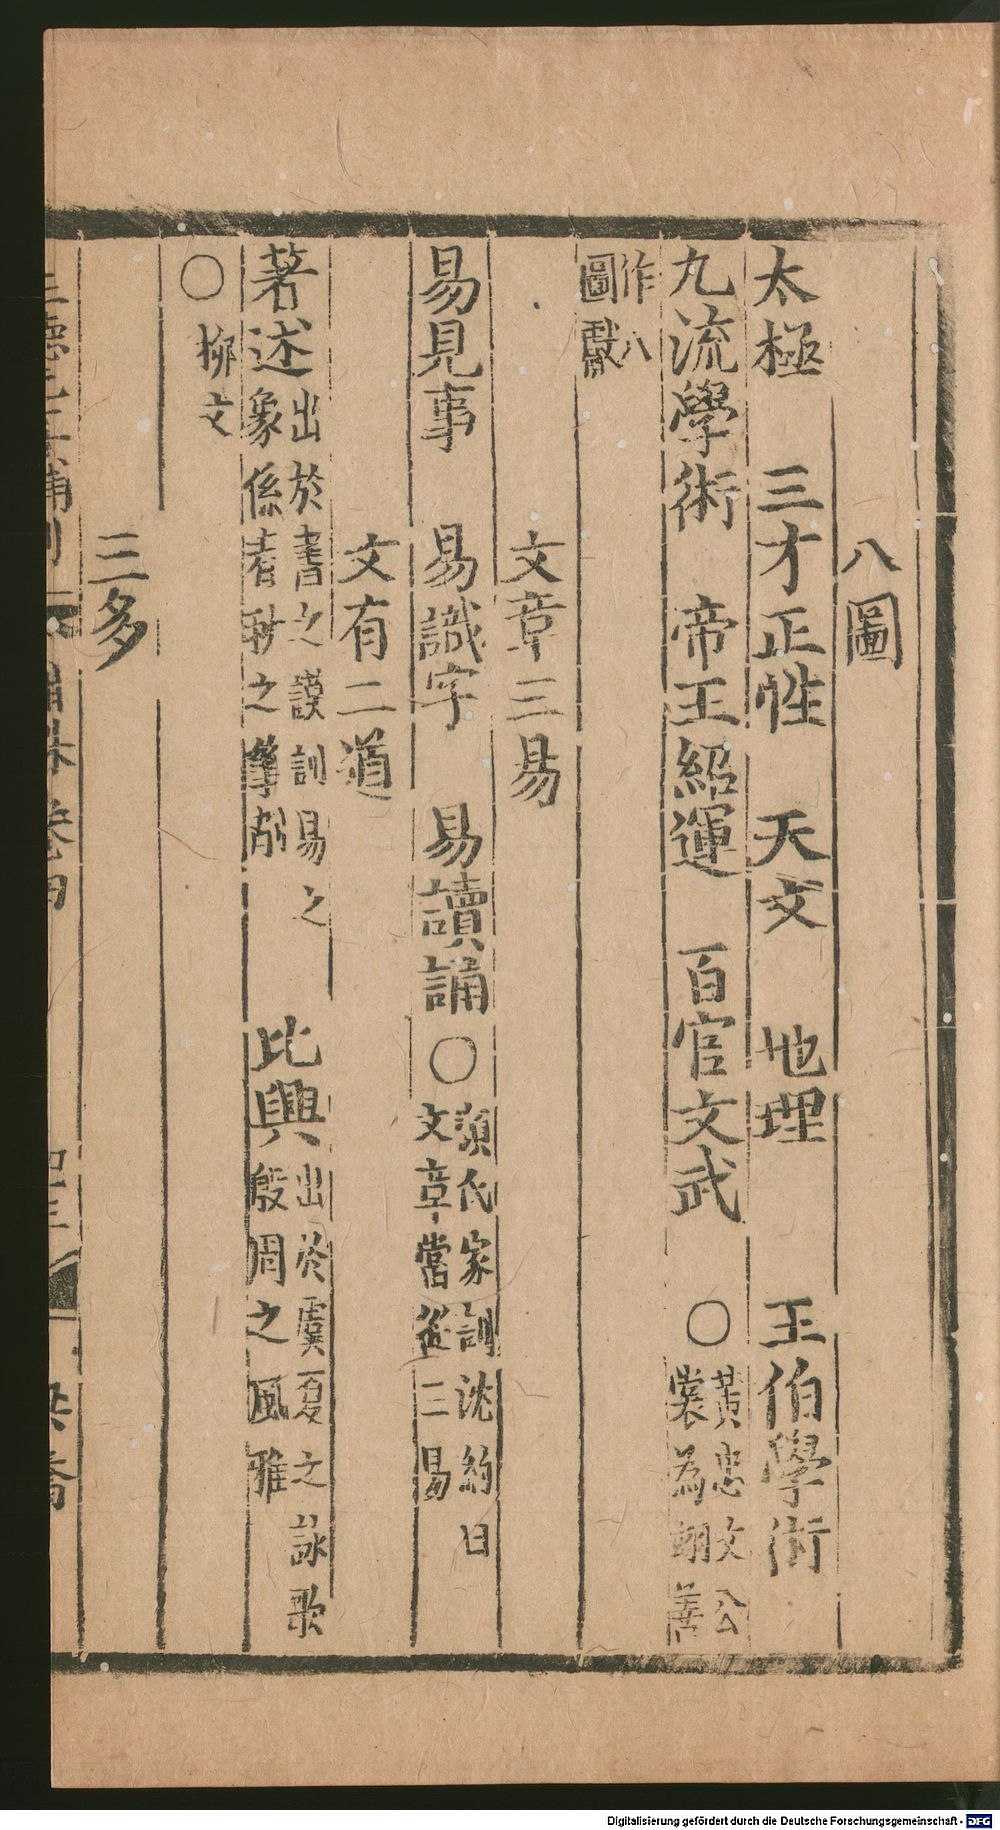 八圖
太極　三才正性　天文　地理　王伯學術
九流學術　帝王紹運　百官文武　○黃忠文公
裳為翊善
作八
圖獻
文章三易
易見事　易識字　易讀誦○顏氏家訓沈約曰
文章當從三易
文有二道
著述出於書之謨訓易之
象係春秋之筆削
比興出於虞夏之詠歌
殷周之風雅
○柳文
三多
Digitalisierung gefördert durch die Deutsche Forschungsgemeinschaft - DFG